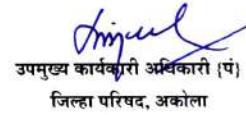 उपमुख्य कार्यकारी अधिकारी {पं}
जिल्हा परिषद, अकोला